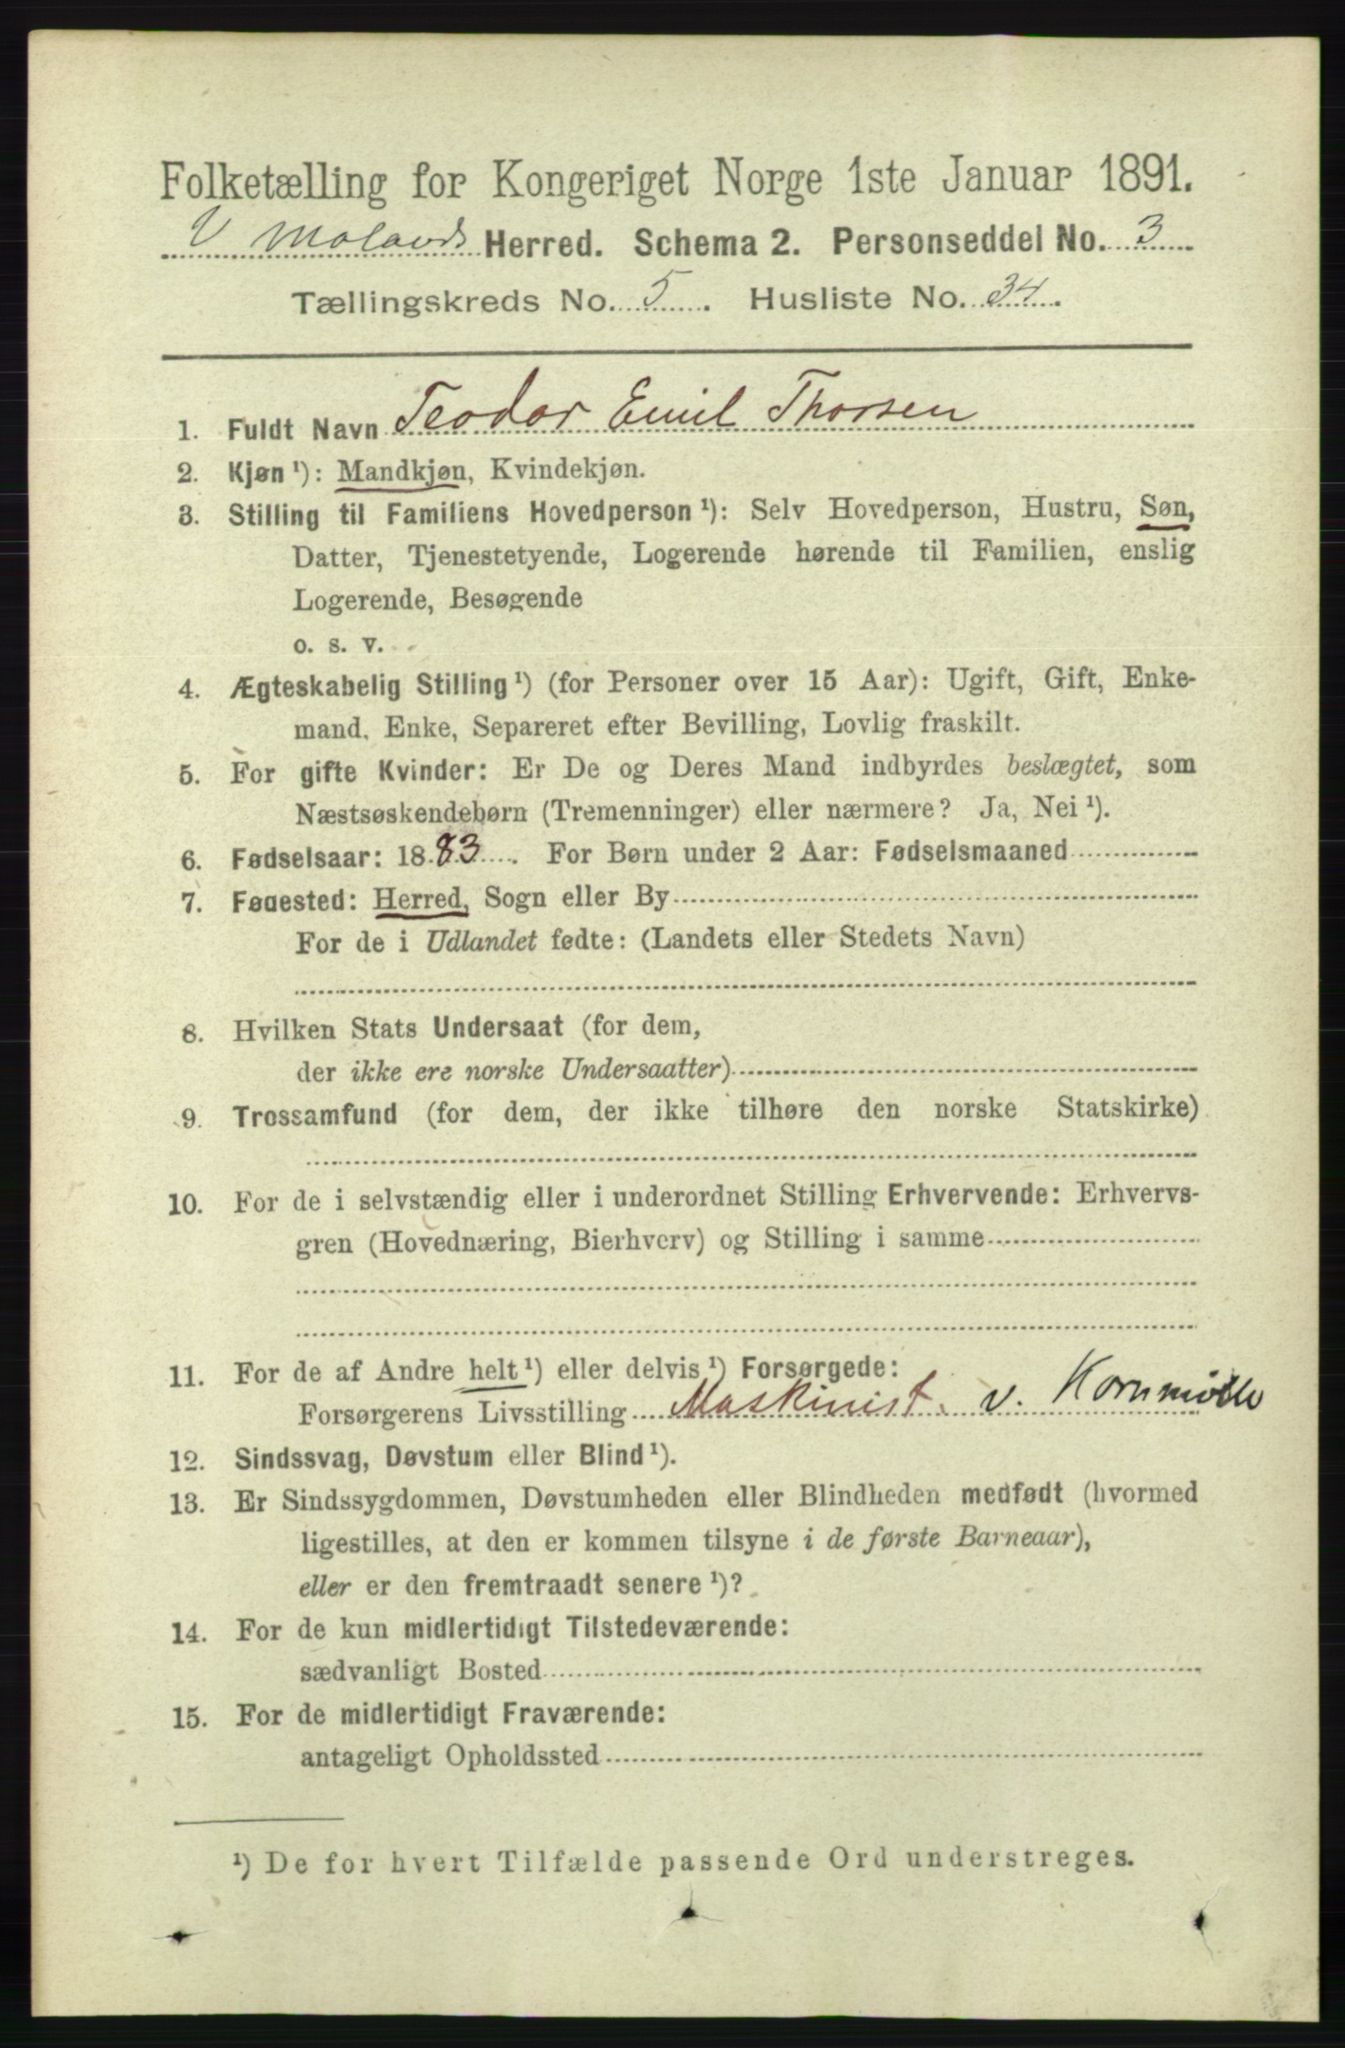 Folketælling for Kongeriget Norge 1ste Januar 1891.
V Molands Herred. Schema 2. Personseddel No. 3
Tællingskreds No. 5. Husliste No. 34.
1. Fuldt Navn Teodor Emil Thorsen
2. Kjøn ¹): Mandkjøn, Kvindekjøn.
3. Stilling til Familiens Hovedperson ¹): Selv Hovedperson, Hustru, Søn,
Datter, Tjenestetyende, Logerende hørende til Familien, enslig
Logerende, Besøgende
o. s. v.
4. Ægteskabelig Stilling ¹) (for Personer over 15 Aar): Ugift, Gift, Enke-
mand, Enke, Separeret efter Bevilling, Lovlig fraskilt.
5. For gifte Kvinder: Er De og Deres Mand indbyrdes beslægtet, som
Næstsøskendebørn (Tremenninger) eller nærmere? Ja, Nei ¹).
6. Fødselsaar: 1883. For Børn under 2 Aar: Fødselsmaaned
7. Fødested: Herred, Sogn eller By
For de i Udlandet fødte: (Landets eller Stedets Navn)
8. Hvilken Stats Undersaat (for dem,
der ikke ere norske Undersaatter)
9. Trossamfund (for dem, der ikke tilhøre den norske Statskirke)
10. For de i selvstændig eller i underordnet Stilling Erhvervende: Erhvervs-
gren (Hovednæring, Bierhverv) og Stilling i samme
11. For de af Andre helt ¹) eller delvis ¹) Forsørgede:
Forsørgerens Livsstilling Maskinist. v. Kornmølle
12. Sindssvag, Døvstum eller Blind ¹).
13. Er Sindssygdommen, Døvstumheden eller Blindheden medfødt (hvormed
ligestilles, at den er kommen tilsyne i de første Barneaar),
eller er den fremtraadt senere ¹)?
14. For de kun midlertidigt Tilstedeværende:
sædvanligt Bosted
15. For de midlertidigt Fraværende:
antageligt Opholdssted
¹) De for hvert Tilfælde passende Ord understreges.